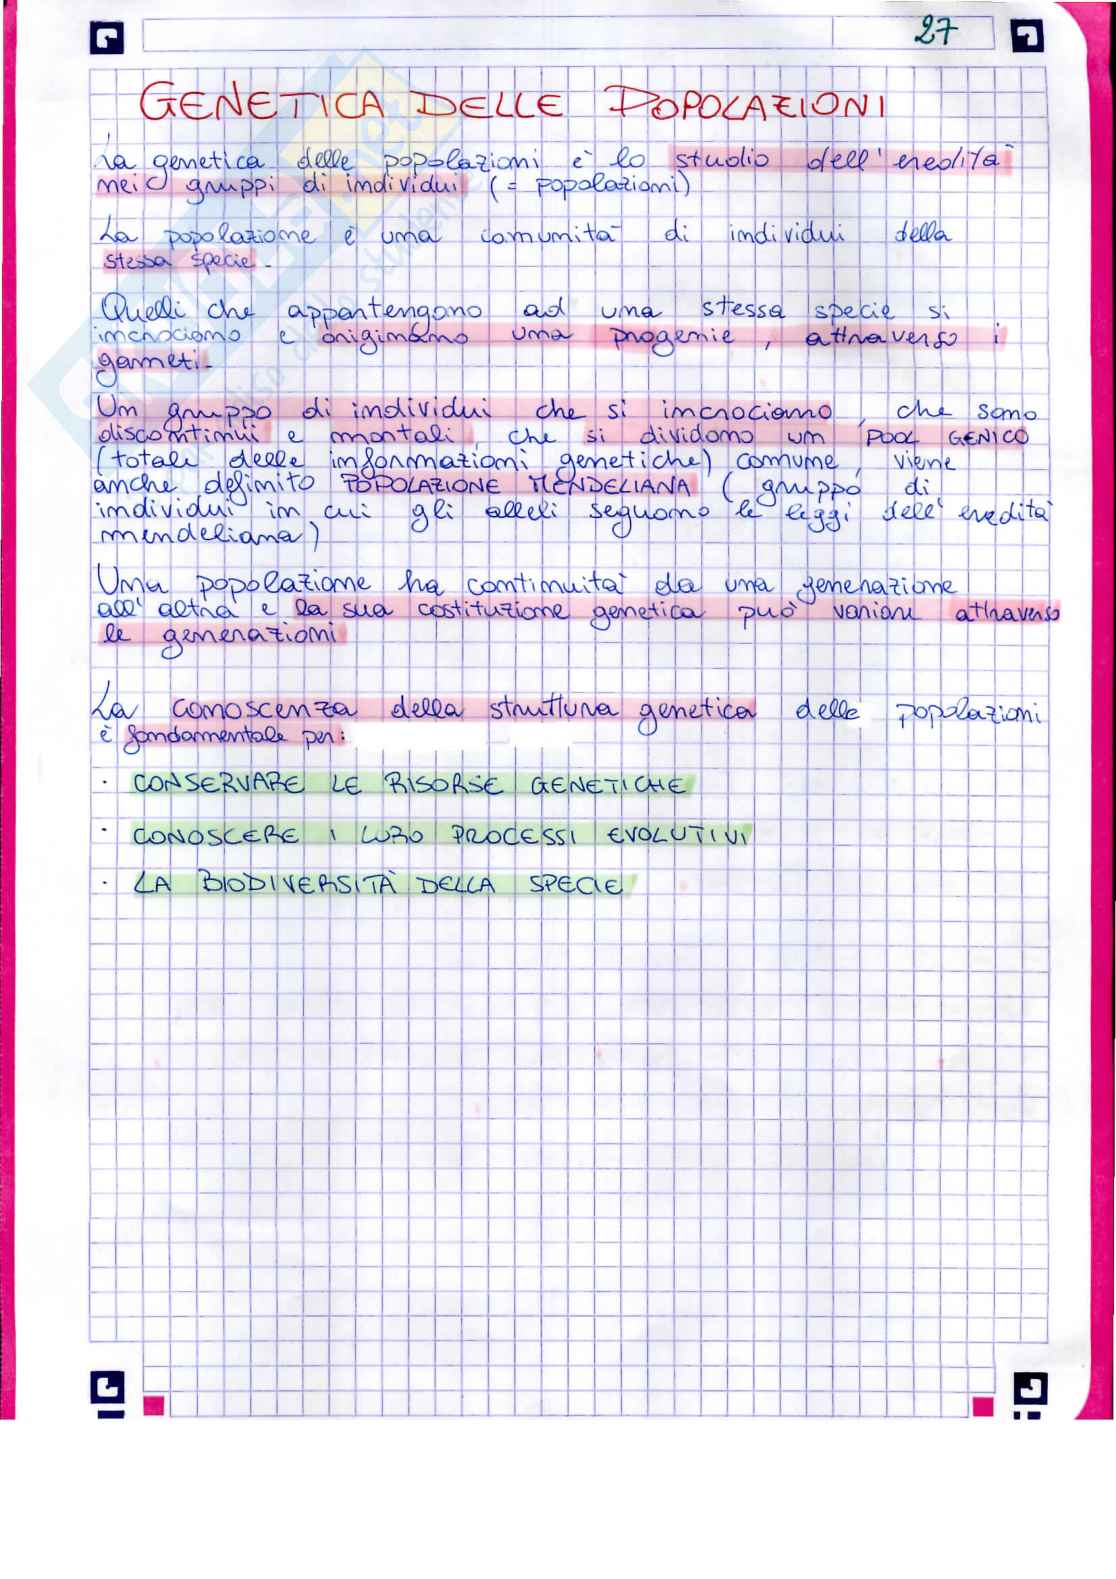 27
GENETICA DELLE POPOLAZIONI
La genetica delle popolazioni è lo studio dell'eredità
nei gruppi di individui (= popolazioni)
La popolazione è una comunità di individui della
stessa specie.
Quelli che appartengono ad una stessa specie si
incrociano e originano una progenie, attraverso i
gameti.
Un gruppo di individui che si incrociano, che sono
discontinui e mortali, che si dividono un POOL GENICO
(totale delle informazioni genetiche) comune, viene
anche definito POPOLAZIONE MENDELIANA (gruppo di
individui in cui gli alleli seguono le leggi dell'eredità
mendeliana)
Una popolazione ha continuità da una generazione
all'altra e la sua costituzione genetica può variare attraverso
le generazioni
La conoscenza della struttura genetica delle popolazioni
è fondamentale per:
· CONSERVARE LE RISORSE GENETICHE
· CONOSCERE I LORO PROCESSI EVOLUTIVI
· LA BIODIVERSITÀ DELLA SPECIE